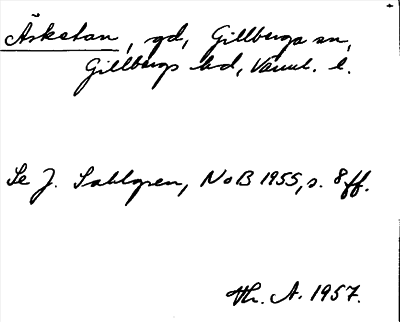 Äskestan, gd, Gillberga sn,
Gillbergs hd, Värml. l.
Se J. Sahlgren, NoB 1955, s. 8 ff.
Th. A. 1957.